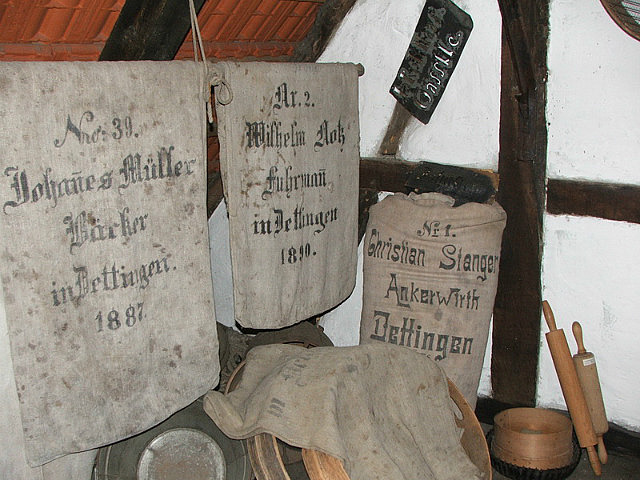 Nro: 39.
Johañes Müller
Bäcker
in Dettingen.
1887.
Nr. 2.
Wilhelm Notz
Fuhrmañ
in Dettingen
1890.
Nr 1.
Christian Stanger
Ankerwirth
Dettingen